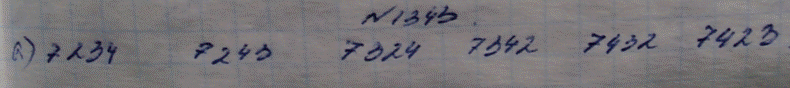 N1343.
а) 7234 7243 7324 7342 7432 7423